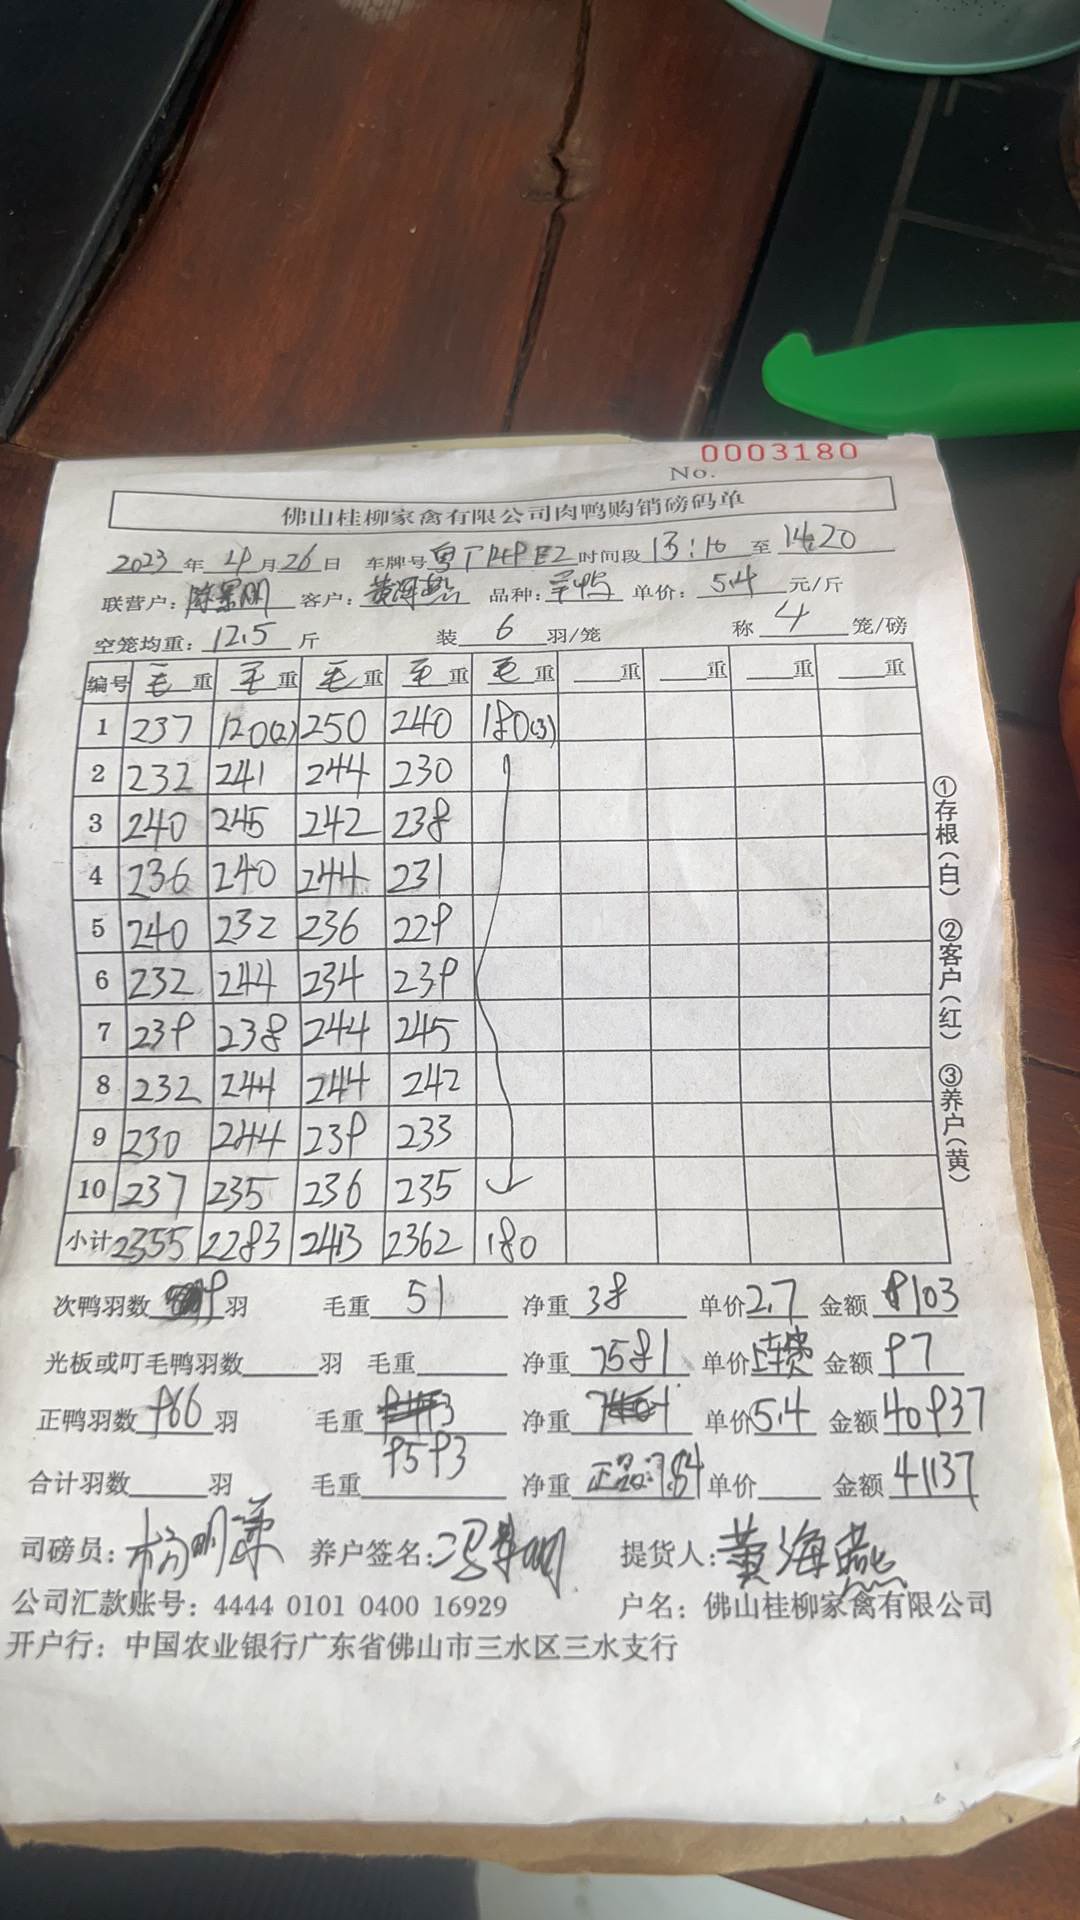 0003180
No.
佛山桂柳家禽有限公司肉鸭购销磅码单
2023 年 4 月 26 日 车牌号 粤 时间段 13:10 至 14:20
联营户: 客户: 黄海燕 品种: 单价: 5.4 元/斤
空笼均重: 12.5 斤 装 6 羽/笼 称 4 笼/磅
编号 毛重 毛重 毛重 毛重 毛重 重 重 重 重
1 237 120(2) 250 240 180(3)
2 232 241 244 230
3 240 245 242 238
4 236 240 244 231
5 240 232 236 229
6 232 244 234 239
7 239 238 244 245
8 232 244 244 242
9 230 244 239 233
10 237 235 236 235
小计 2355 2283 2413 2362 180
次鸭羽数 9 羽 毛重 51 净重 38 单价 2.7 金额 103
光板或叮毛鸭羽数 羽 毛重 净重 7581 单价 金额 97
正鸭羽数 966 羽 毛重 净重 单价 5.4 金额 40937
9593
合计羽数 羽 毛重 净重 单价 金额 41137
司磅员: 养户签名: 提货人: 黄海燕
公司汇款账号: 4444 0101 0400 16929 户名: 佛山桂柳家禽有限公司
开户行: 中国农业银行广东省佛山市三水区三水支行
①存根(白) ②客户(红) ③养户(黄)